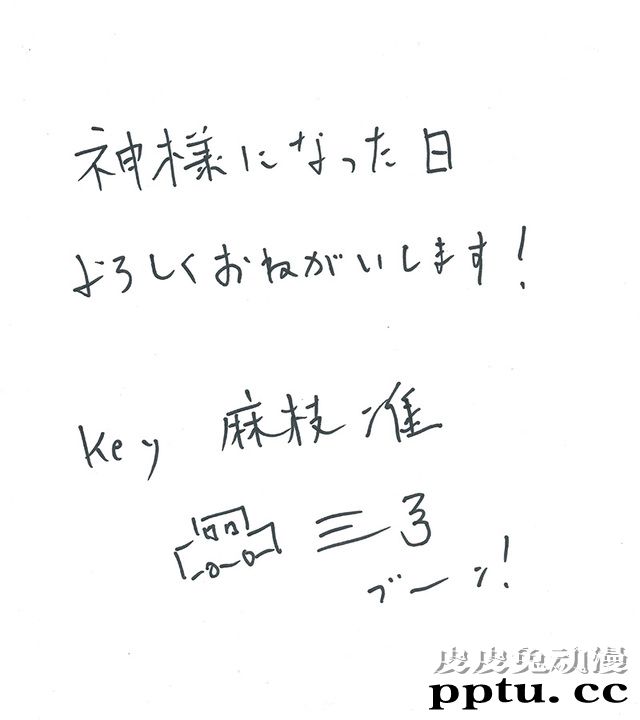 神様になった日
よろしくおねがいします!
Key 麻枝准
ブーン!
皮皮兔动漫
pptu.cc